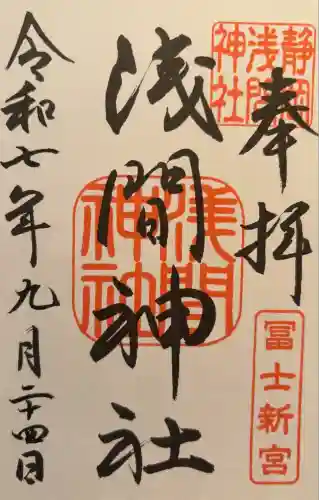 奉拝
静岡
浅間
神社
冨士新宮
浅間神社
浅間
神社
令和七年九月二十四日